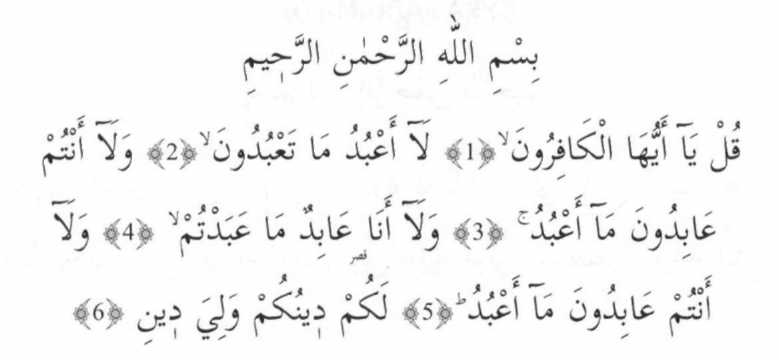 بِسْمِ اللّٰهِ الرَّحْمٰنِ الرَّحٖيمِ
قُلْ يَٓا أَيُّهَا الْكَافِرُونَۙ ﴿1﴾ لَٓا أَعْبُدُ مَا تَعْبُدُونَۙ ﴿2﴾ وَلَٓا أَنْتُمْ
عَابِدُونَ مَٓا أَعْبُدُۚ ﴿3﴾ وَلَٓا أَنَا۬ عَابِدٌ مَا عَبَدْتُمْۙ ﴿4﴾ وَلَٓا
قصر
أَنْتُمْ عَابِدُونَ مَٓا أَعْبُدُۜ ﴿5﴾ لَكُمْ دٖينُكُمْ وَلِيَ دٖينِ ﴿6﴾